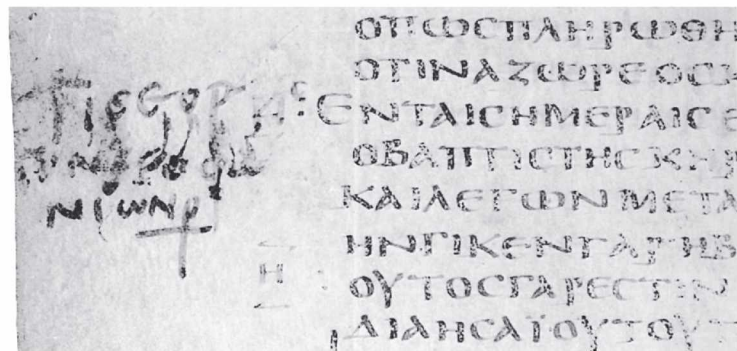 ΟΠΩϹΠΛΗΡΩΘΗ
ΟΤΙΝΑΖΩΡΕΟϹΚ
ΕΝΤΑΙϹΗΜΕΡΑΙϹΕ
ΟΒΑΠΤΙϹΤΗϹΚΗΡ
ΚΑΙΛΕΓΩΝΜΕΤΑ
ΗΝΓΙΚΕΝΓΑΡΗΒ
Η
ΟΥΤΟϹΓΑΡΕϹΤΙΝ
ΔΙΑΗϹΑΪΟΥΤΟΥΤ